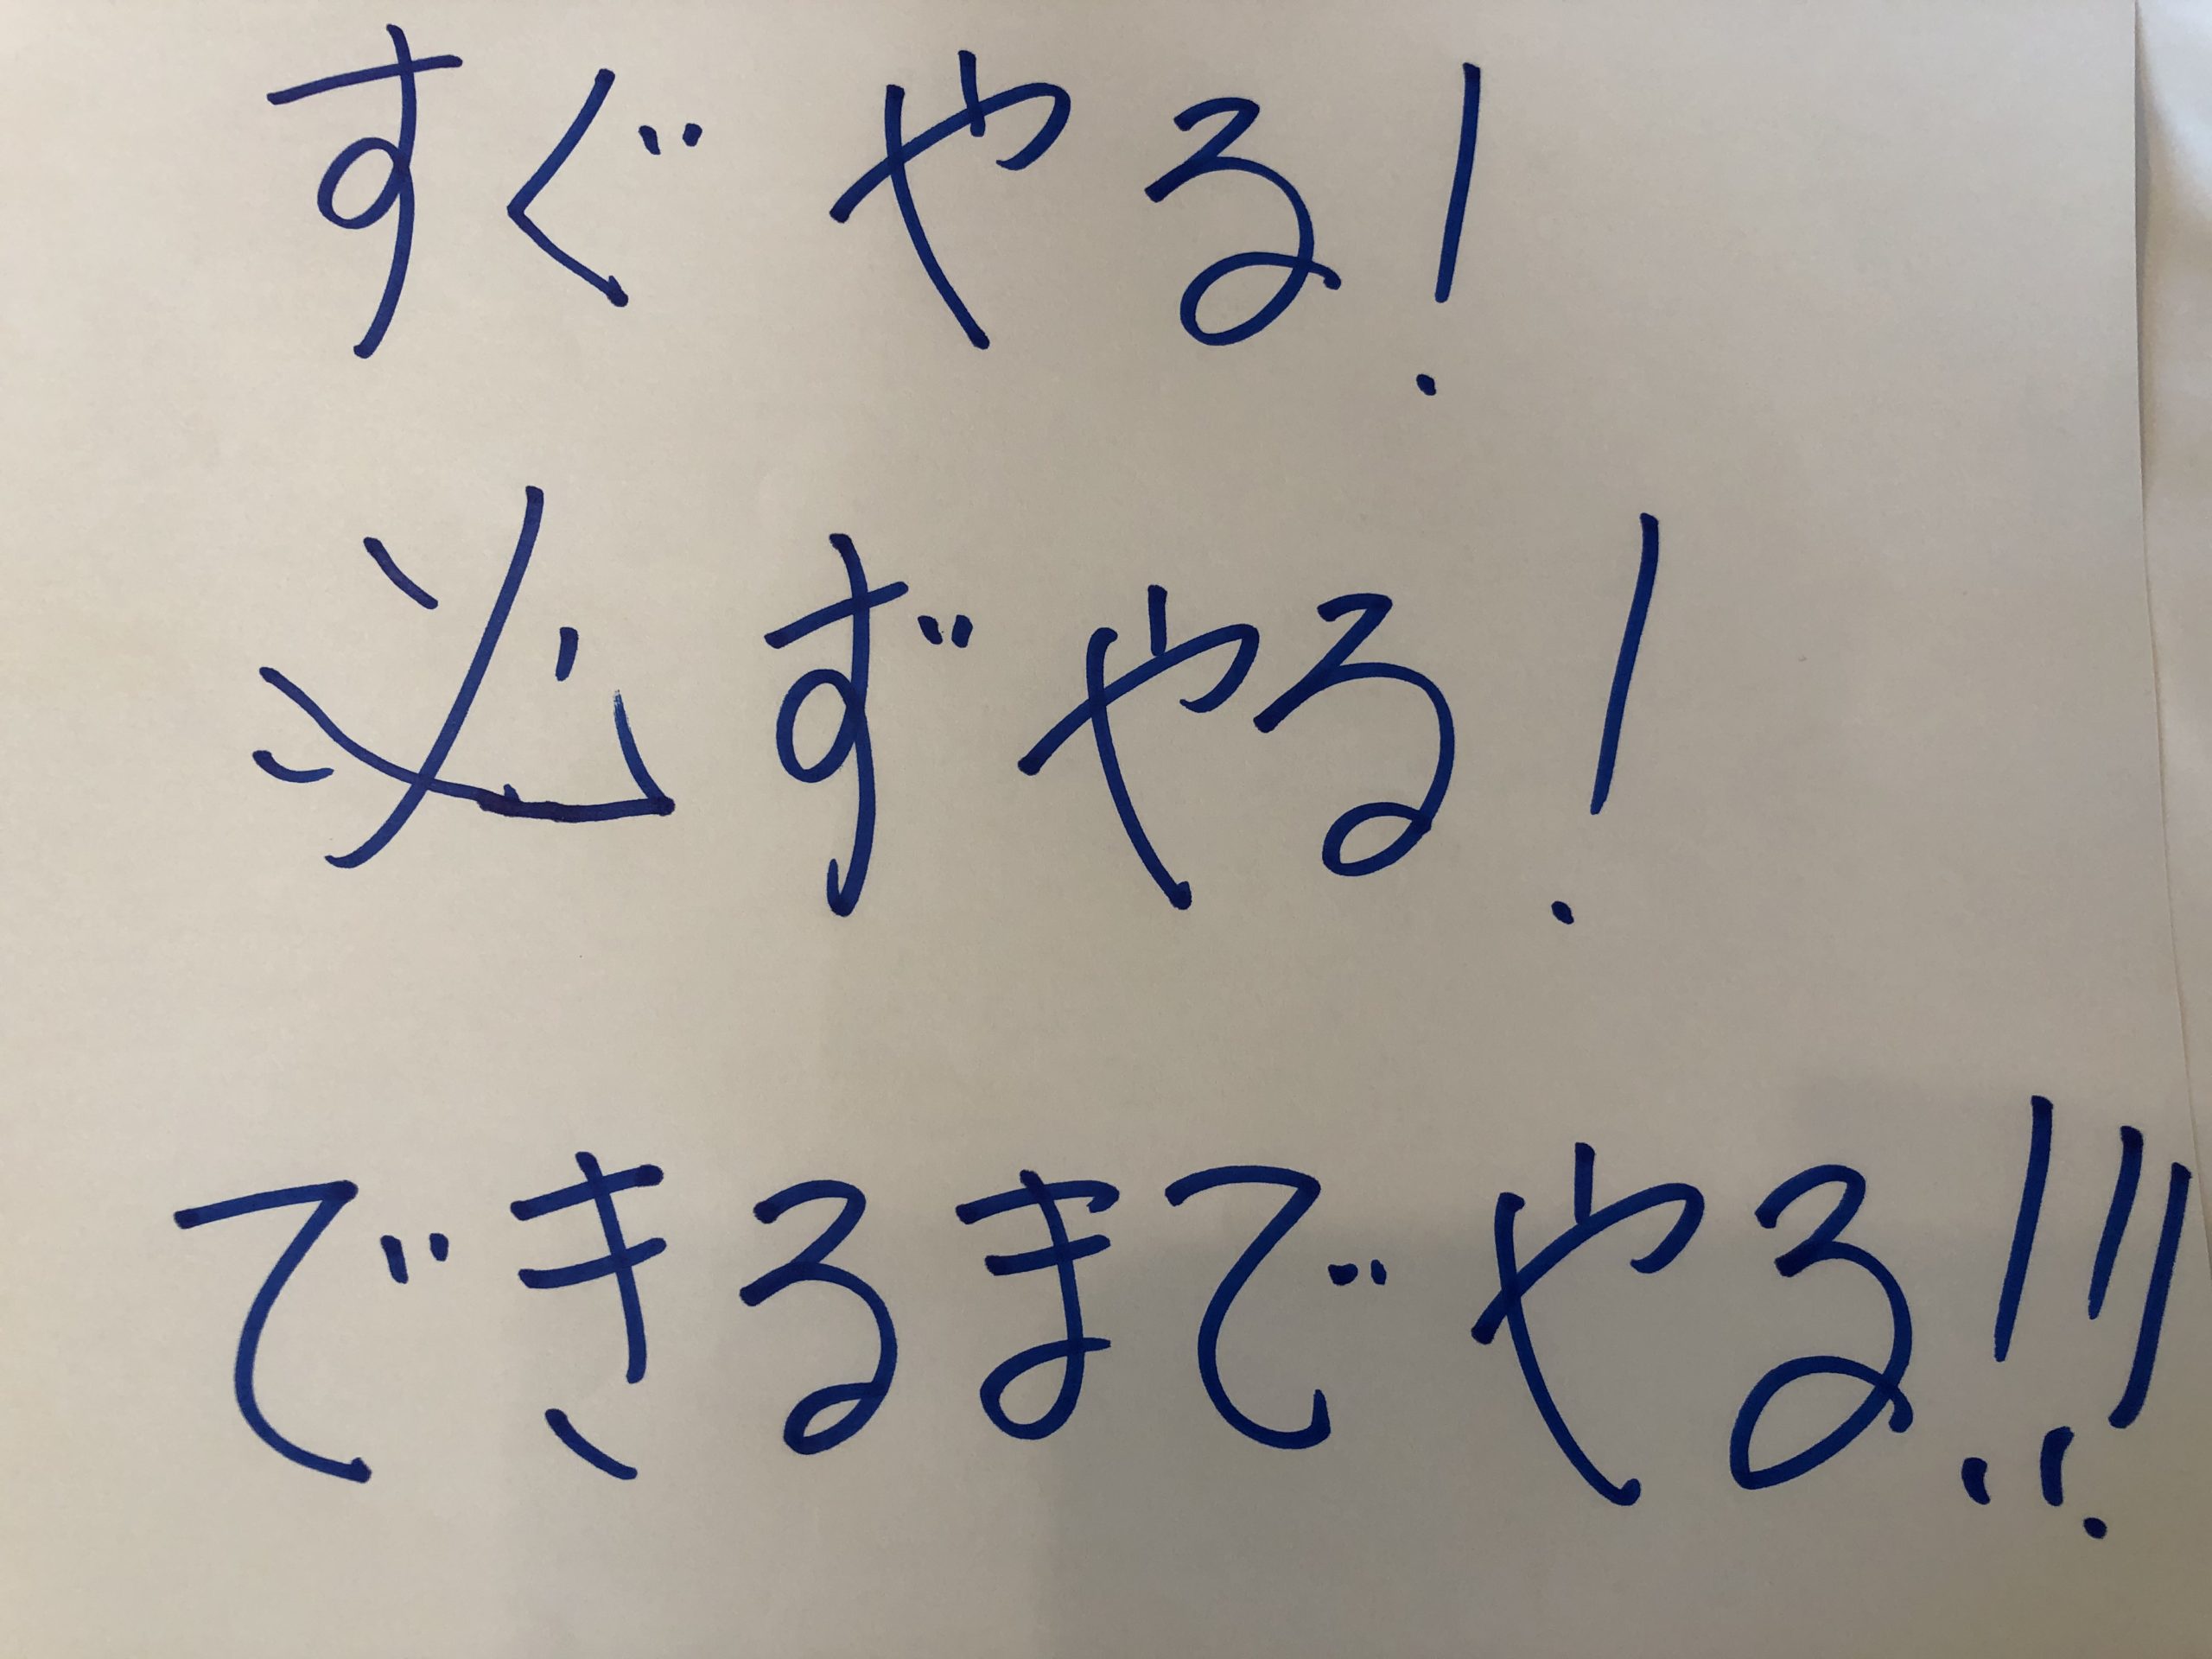 すぐやる!
必ずやる!
できるまでやる!!!